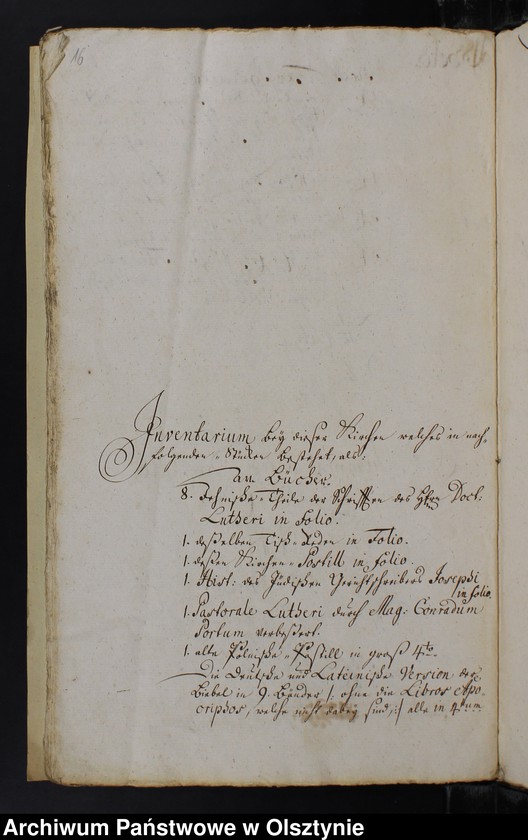 16
Inventarium bey dieser Kirchen welches in nach-
folgenden Stücken bestehet, als:
an Bücher.
8. Jehnische Theile der Schrifften des Hrn Doct:
Lutheri in Folio.
1. desselben Tisch-Reden in Folio.
1. dessen Kirchen-Postill in folio.
1. Hist: des Jüdischen Geschichtschreibers Josephi
in folio.
1. Pastorale Lutheri durch Mag: Conradum
Portum verbessert.
1. alte Polnische-Postill in groß 4to.
Die Deutsche und Lateinische Version der
Biebel in 9. Bänder /: ohne die Libros Apo-
criphos, welche nicht dabey sind, :/ alle in 4
Archiwum Państwowe w Olsztynie